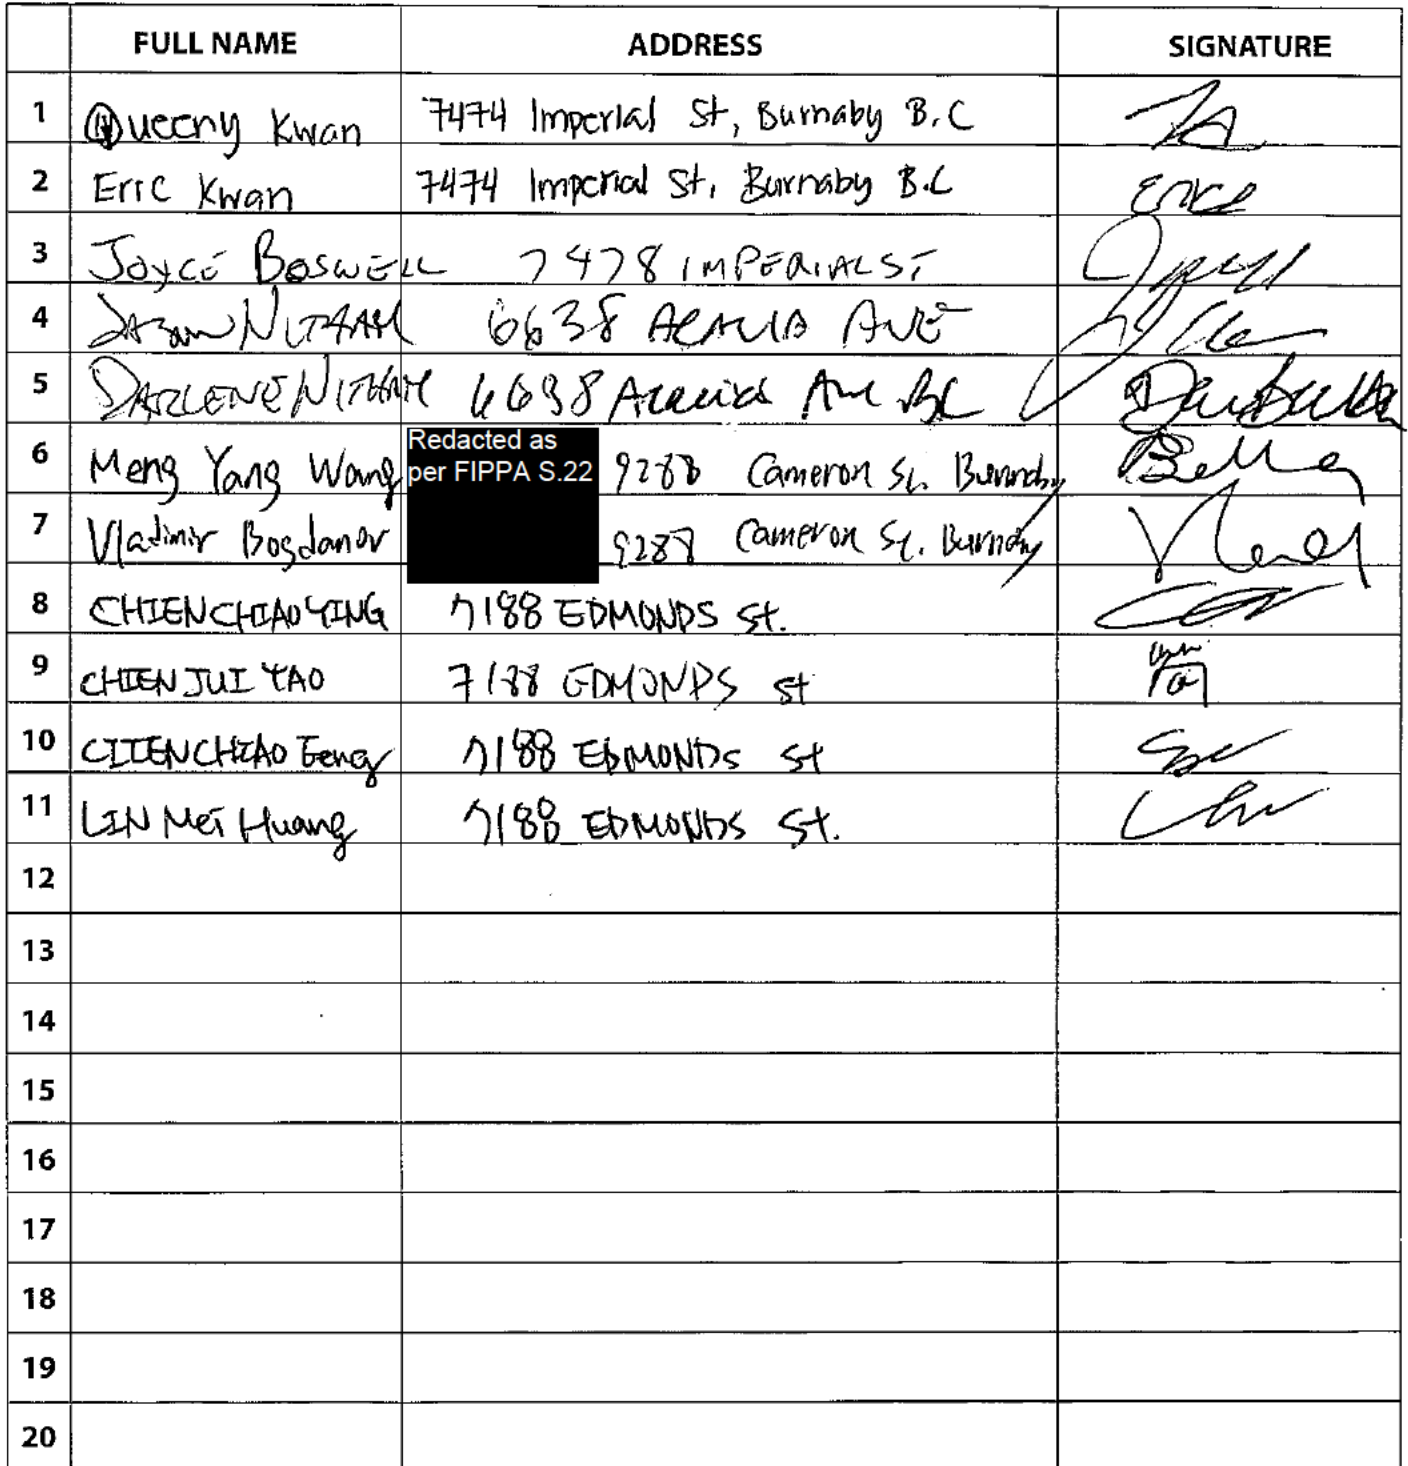 FULL NAME ADDRESS SIGNATURE
1 Queeny Kwan 7474 Imperial St, Burnaby B.C
2 Eric Kwan 7474 Imperial St, Burnaby B.C Eric
3 Joyce BOSWELL 7478 IMPERIAL ST
4 6638 ACACIA AVE
5 DARLENE 6638 Acacia Ave BC
6 Meng Yang Wang Redacted as per FIPPA S.22 9288 Cameron St. Burnaby
7 Vladimir Bogdanov 9288 Cameron St. Burnaby
8 CHIEN CHIAO YING 7188 EDMONDS St.
9 CHIEN JUI YAO 7188 EDMONDS St
10 CHIEN CHIAO Feng 7188 EDMONDS St
11 LIN Mei Huang 7188 EDMONDS St.
12
13
14
15
16
17
18
19
20